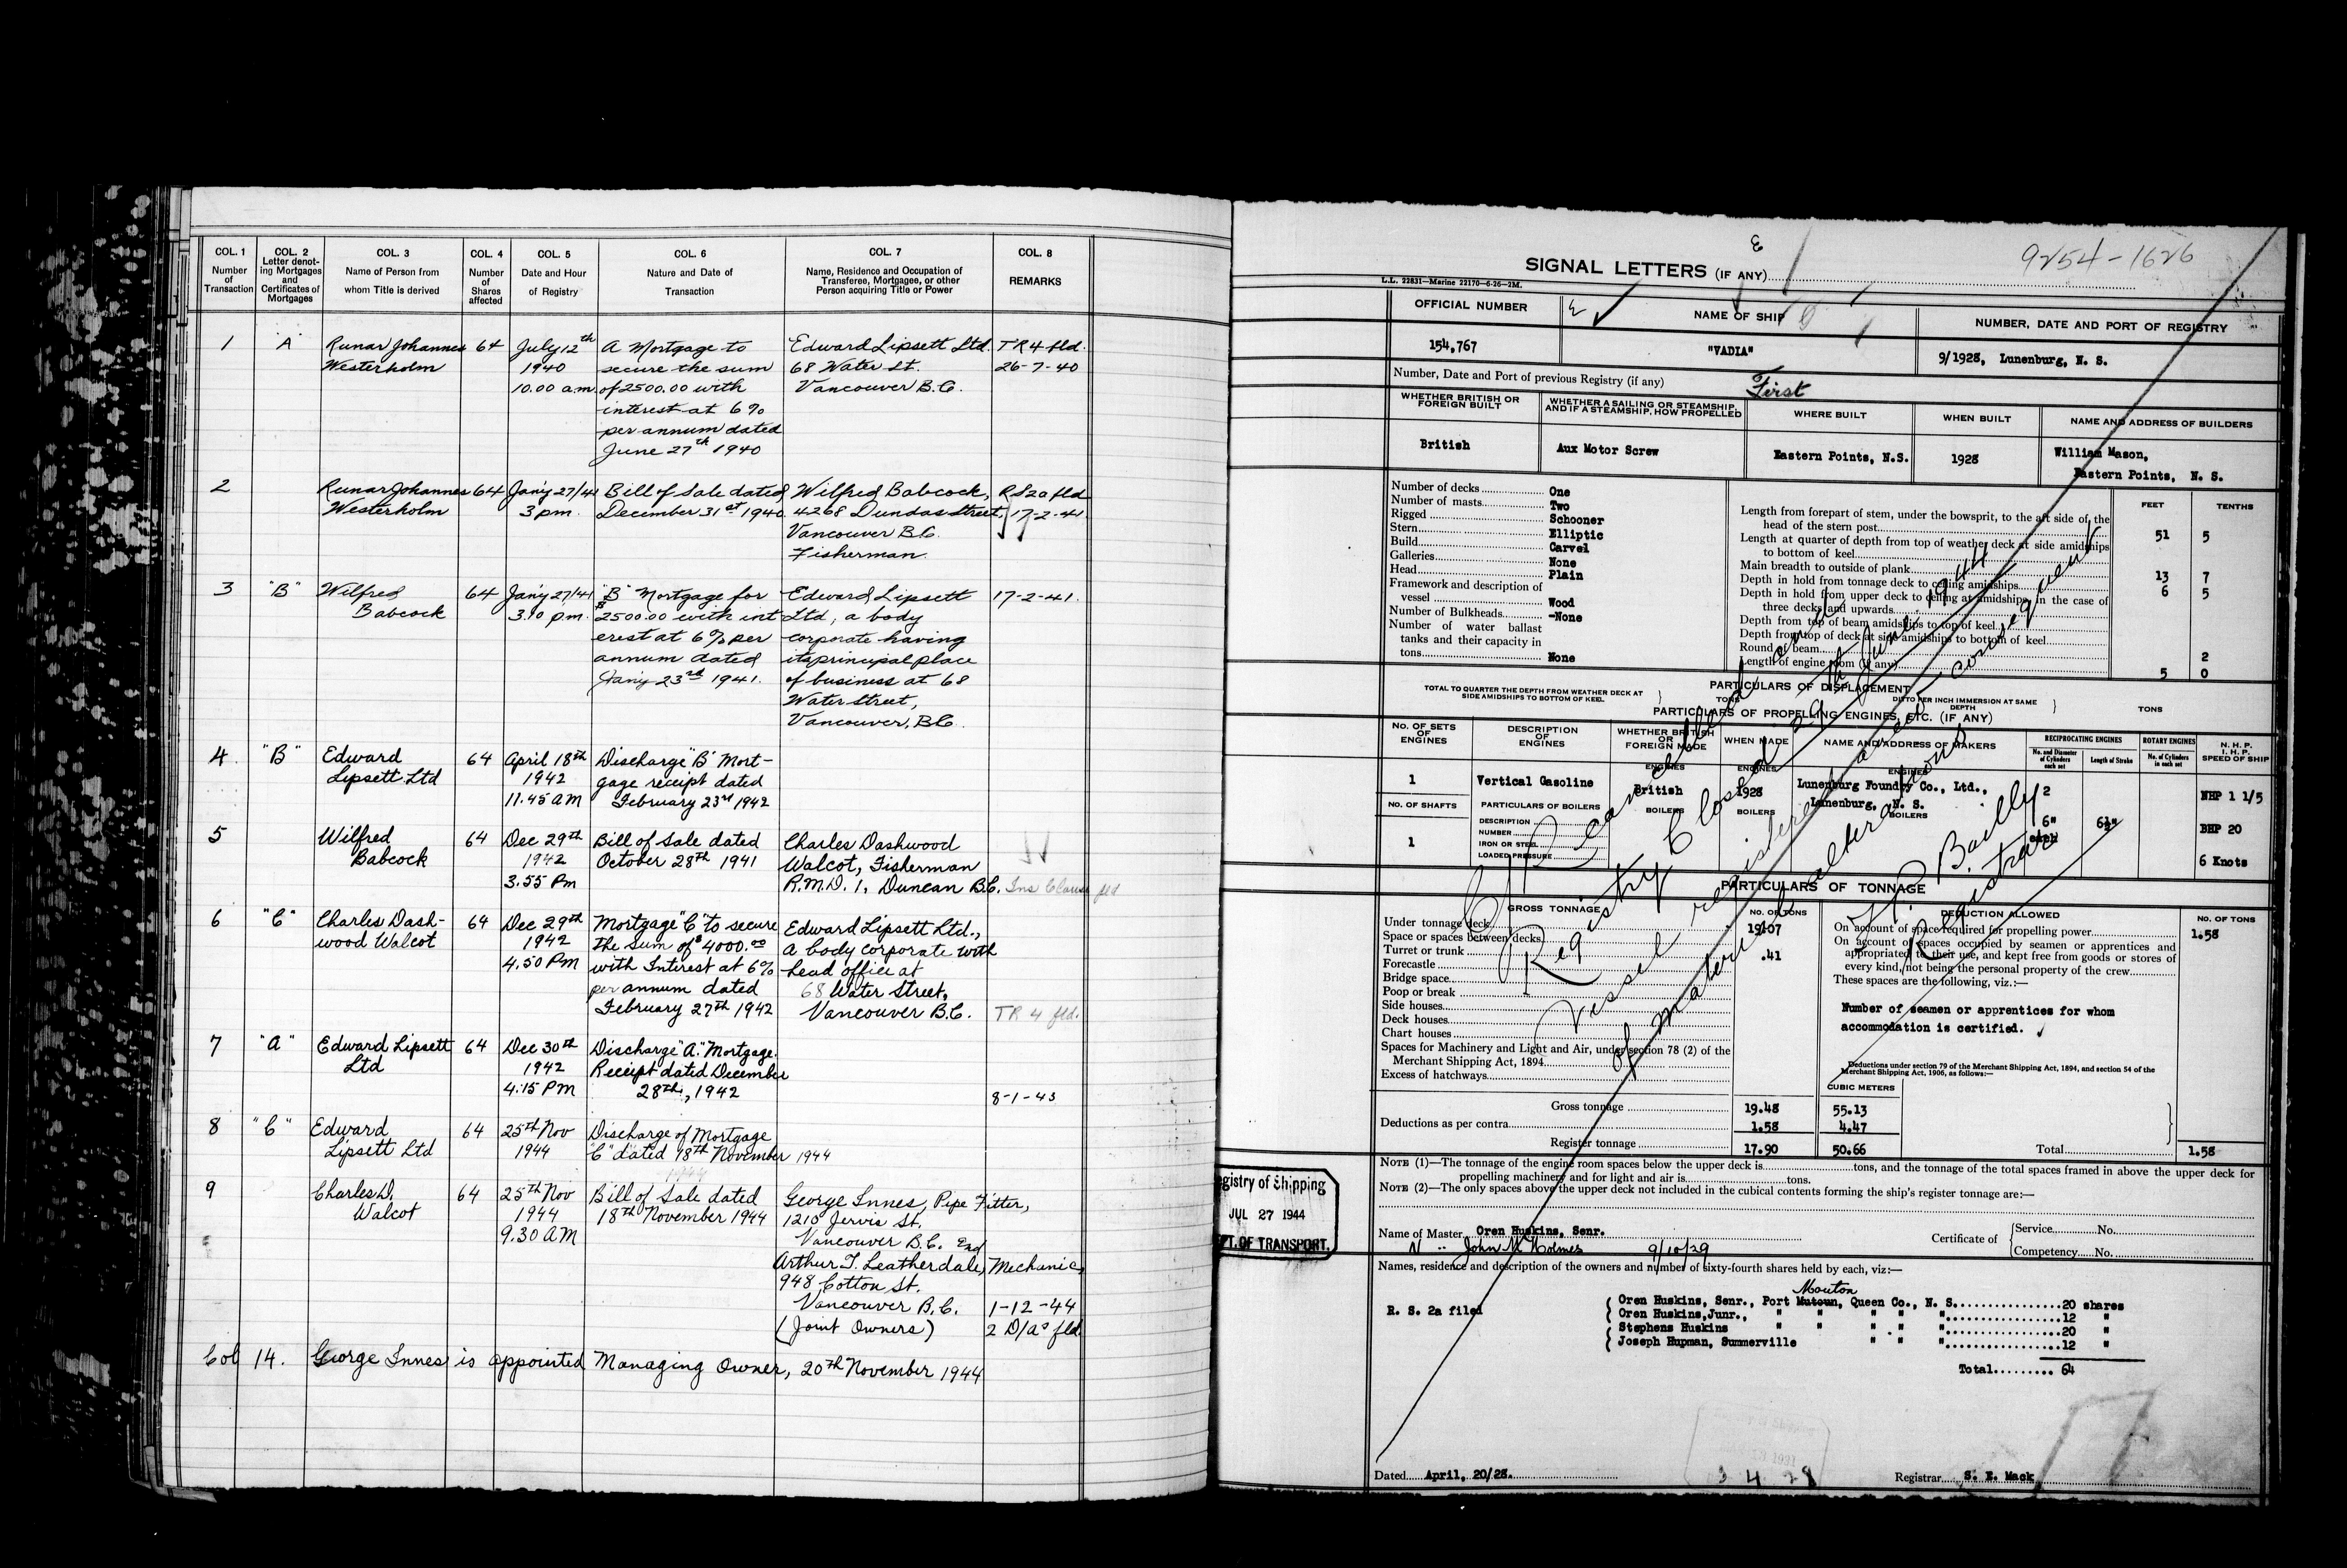 COL. 1 COL. 2 COL. 3 COL. 4 COL. 5 COL. 6 COL. 7 COL. 8
Number of Transaction
Letter denoting Mortgages and Certificates of Mortgages
Name of Person from whom Title is derived
Number of Shares affected
Date and Hour of Registry
Nature and Date of Transaction
Name, Residence and Occupation of Transferee, Mortgagee, or other Person acquiring Title or Power
REMARKS
1 "A" Runar Johannes 64 July 12th A Mortgage to Edward Lipsett Ltd. TR4 fld.
Westerholm 1940 secure the sum 68 Water St. 26-7-40
10.00 am. of 2500.00 with Vancouver B.C.
interest at 6%
per annum dated
June 27th 1940
2 Runar Johannes 64 Jan'y 27/41 Bill of Sale dated Wilfred Babcock, RS2a fld
Westerholm 3 pm. December 31st 1940 4268 Dundas Street, 17-2-41.
Vancouver B.C.
Fisherman.
3 "B" Wilfred 64 Jan'y 27/41 "B" Mortgage for Edward Lipsett 17-2-41.
Babcock 3.10 p.m. $2500.00 with int Ltd, a body
erest at 6% per corporate having
annum dated its principal place
Jan'y 23rd 1941. of business at 68
Water Street,
Vancouver, B.C.
4 "B" Edward 64 April 18th Discharge "B" Mort-
Lipsett Ltd 1942 gage receipt dated
11.45 AM February 23rd 1942
5 Wilfred 64 Dec 29th Bill of Sale dated Charles Dashwood
Babcock 1942 October 28th 1941 Walcot, Fisherman
3.55 Pm R.M.D. 1, Duncan B.C. Ins Clause fld
6 "C" Charles Dash- 64 Dec 29th Mortgage "C" to secure Edward Lipsett Ltd.,
wood Walcot 1942 the sum of $4000.00 A body corporate with
4.50 PM with Interest at 6% head office at
per annum dated 68 Water Street,
February 27th 1942 Vancouver B.C. TR 4 fld.
7 "A" Edward Lipsett 64 Dec 30th Discharge "A" Mortgage.
Ltd 1942 Receipt dated December
4.15 PM 28th, 1942 8-1-43
8 "C" Edward 64 25th Nov Discharge of Mortgage
Lipsett Ltd 1944 "C" dated 18th November 1944
9 Charles D. 64 25th Nov Bill of Sale dated George Innes, Pipe Fitter,
Walcot 1944 18th November 1944 1215 Jervis St.
9.30 AM Vancouver B.C. and
Arthur T. Leatherdale, Mechanic,
948 Cotton St.
Vancouver B.C. 1-12-44
(Joint Owners) 2 D/As fld.
Col 14. George Innes is appointed Managing Owner, 20th November 1944
9254-1626
SIGNAL LETTERS (IF ANY)
L.L. 22831—Marine 22170—6-26—2M.
OFFICIAL NUMBER NAME OF SHIP NUMBER, DATE AND PORT OF REGISTRY
154,767 "VADIA" 9/1928, Lunenburg, N. S.
Number, Date and Port of previous Registry (if any) First
WHETHER BRITISH OR FOREIGN BUILT
WHETHER A SAILING OR STEAMSHIP, AND IF A STEAMSHIP, HOW PROPELLED
WHERE BUILT WHEN BUILT NAME AND ADDRESS OF BUILDERS
British Aux Motor Screw Eastern Points, N.S. 1928 William Mason,
Eastern Points, N. S.
Number of decks One
Number of masts Two
Rigged Schooner
Stern Elliptic
Build Carvel
Galleries None
Head Plain
Framework and description of
vessel Wood
Number of Bulkheads -None
Number of water ballast
tanks and their capacity in
tons None
FEET TENTHS
Length from forepart of stem, under the bowsprit, to the aft side of the
head of the stern post 51 5
Length at quarter of depth from top of weather deck at side amidships
to bottom of keel
Main breadth to outside of plank 13 7
Depth in hold from tonnage deck to ceiling amidships 6 5
Depth in hold from upper deck to ceiling at amidships, in the case of
three decks and upwards
Depth from top of beam amidships to top of keel
Depth from top of deck at side amidships to bottom of keel
Round of beam 2
Length of engine room (if any) 5 0
PARTICULARS OF DISPLACEMENT
TOTAL TO QUARTER THE DEPTH FROM WEATHER DECK AT SIDE AMIDSHIPS TO BOTTOM OF KEEL TONS
DITTO PER INCH IMMERSION AT SAME DEPTH TONS
PARTICULARS OF PROPELLING ENGINES, ETC. (IF ANY)
NO. OF SETS OF ENGINES
DESCRIPTION OF ENGINES
WHETHER BRITISH OR FOREIGN MADE
WHEN MADE
NAME AND ADDRESS OF MAKERS
RECIPROCATING ENGINES ROTARY ENGINES
No. and Diameter of Cylinders each set
Length of Stroke
No. of Cylinders in each set
N. H. P.
I. H. P.
SPEED OF SHIP
ENGINES ENGINES ENGINES
1 Vertical Gasoline British 1928 Lunenburg Foundry Co., Ltd., 2 NHP 1 1/5
Lunenburg, N. S.
NO. OF SHAFTS PARTICULARS OF BOILERS BOILERS BOILERS BOILERS
DESCRIPTION
NUMBER
IRON OR STEEL
LOADED PRESSURE
1 6" each 6½" BHP 20
6 Knots
PARTICULARS OF TONNAGE
GROSS TONNAGE NO. OF TONS DEDUCTION ALLOWED NO. OF TONS
Under tonnage deck 19.07
Space or spaces between decks
Turret or trunk .41
Forecastle
Bridge space
Poop or break
Side houses
Deck houses
Chart houses
Spaces for Machinery and Light and Air, under section 78 (2) of the
Merchant Shipping Act, 1894
Excess of hatchways
On account of space required for propelling power 1.58
On account of spaces occupied by seamen or apprentices and
appropriated to their use, and kept free from goods or stores of
every kind, not being the personal property of the crew
These spaces are the following, viz.:—
Number of seamen or apprentices for whom
accommodation is certified.
Deductions under section 79 of the Merchant Shipping Act, 1894, and section 54 of the
Merchant Shipping Act, 1906, as follows:—
CUBIC METERS
Gross tonnage 19.48 55.13
Deductions as per contra 1.58 4.47
Register tonnage 17.90 50.66 Total 1.58
C/R cancelled and
Registry Closed 29th June 1944
Vessel registered anew consequent
of material alterations
Bailly
Registrar
NOTE (1)—The tonnage of the engine room spaces below the upper deck is tons, and the tonnage of the total spaces framed in above the upper deck for
propelling machinery and for light and air is tons.
NOTE (2)—The only spaces above the upper deck not included in the cubical contents forming the ship's register tonnage are:—
gistry of Shipping
JUL 27 1944
PT. OF TRANSPORT.
Name of Master Oren Huskins, Senr.
John M Holmes 9/10/29
Certificate of Service No.
Competency No.
Names, residence and description of the owners and number of sixty-fourth shares held by each, viz:—
R. S. 2a filed
Mouton
Oren Huskins, Senr., Port Mutoun, Queen Co., N. S. 20 shares
Oren Huskins, Junr., " " " " " 12 "
Stephens Huskins " " " " " 20 "
Joseph Hupman, Summerville " " " 12 "
Total 64
Dated April, 20/28. 3 4 28 Registrar S. E. Mack